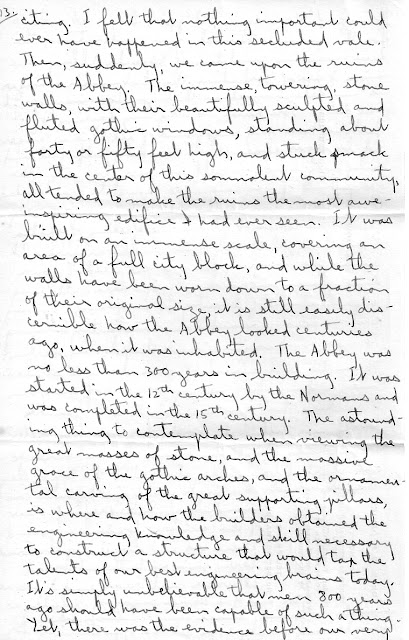 13.
citing. I felt that nothing important could
ever have happened in this secluded vale.
Then, suddenly, we came upon the ruins
of the Abbey. The immense, towering, stone
walls, with their beautifully sculpted and
fluted gothic windows, standing about
forty or fifty feet high, and stuck smack
in the center of this somnolent community,
all tended to make the ruins the most awe-
inspiring edifice I had ever seen. It was
built on an immense scale, covering an
area of a full city block, and while the
walls have been worn down to a fraction
of their original size, it is still easily dis-
cernible how the Abbey looked centuries
ago, when it was inhabited. The Abbey was
no less than 300 years in building. It was
started in the 12th century by the Normans and
was completed in the 15th century. The astound-
ing thing to contemplate when viewing the
great masses of stone, and the massive
grace of the gothic arches, and the ornamen-
tal carving of the great supporting pillars,
is where and how the builders obtained the
engineering knowledge and skill necessary
to construct a structure that would tax the
talents of our best engineering brains today.
It's simply unbelievable that men 800 years
ago should have been capable of such a thing.
Yet, there was the evidence before our very